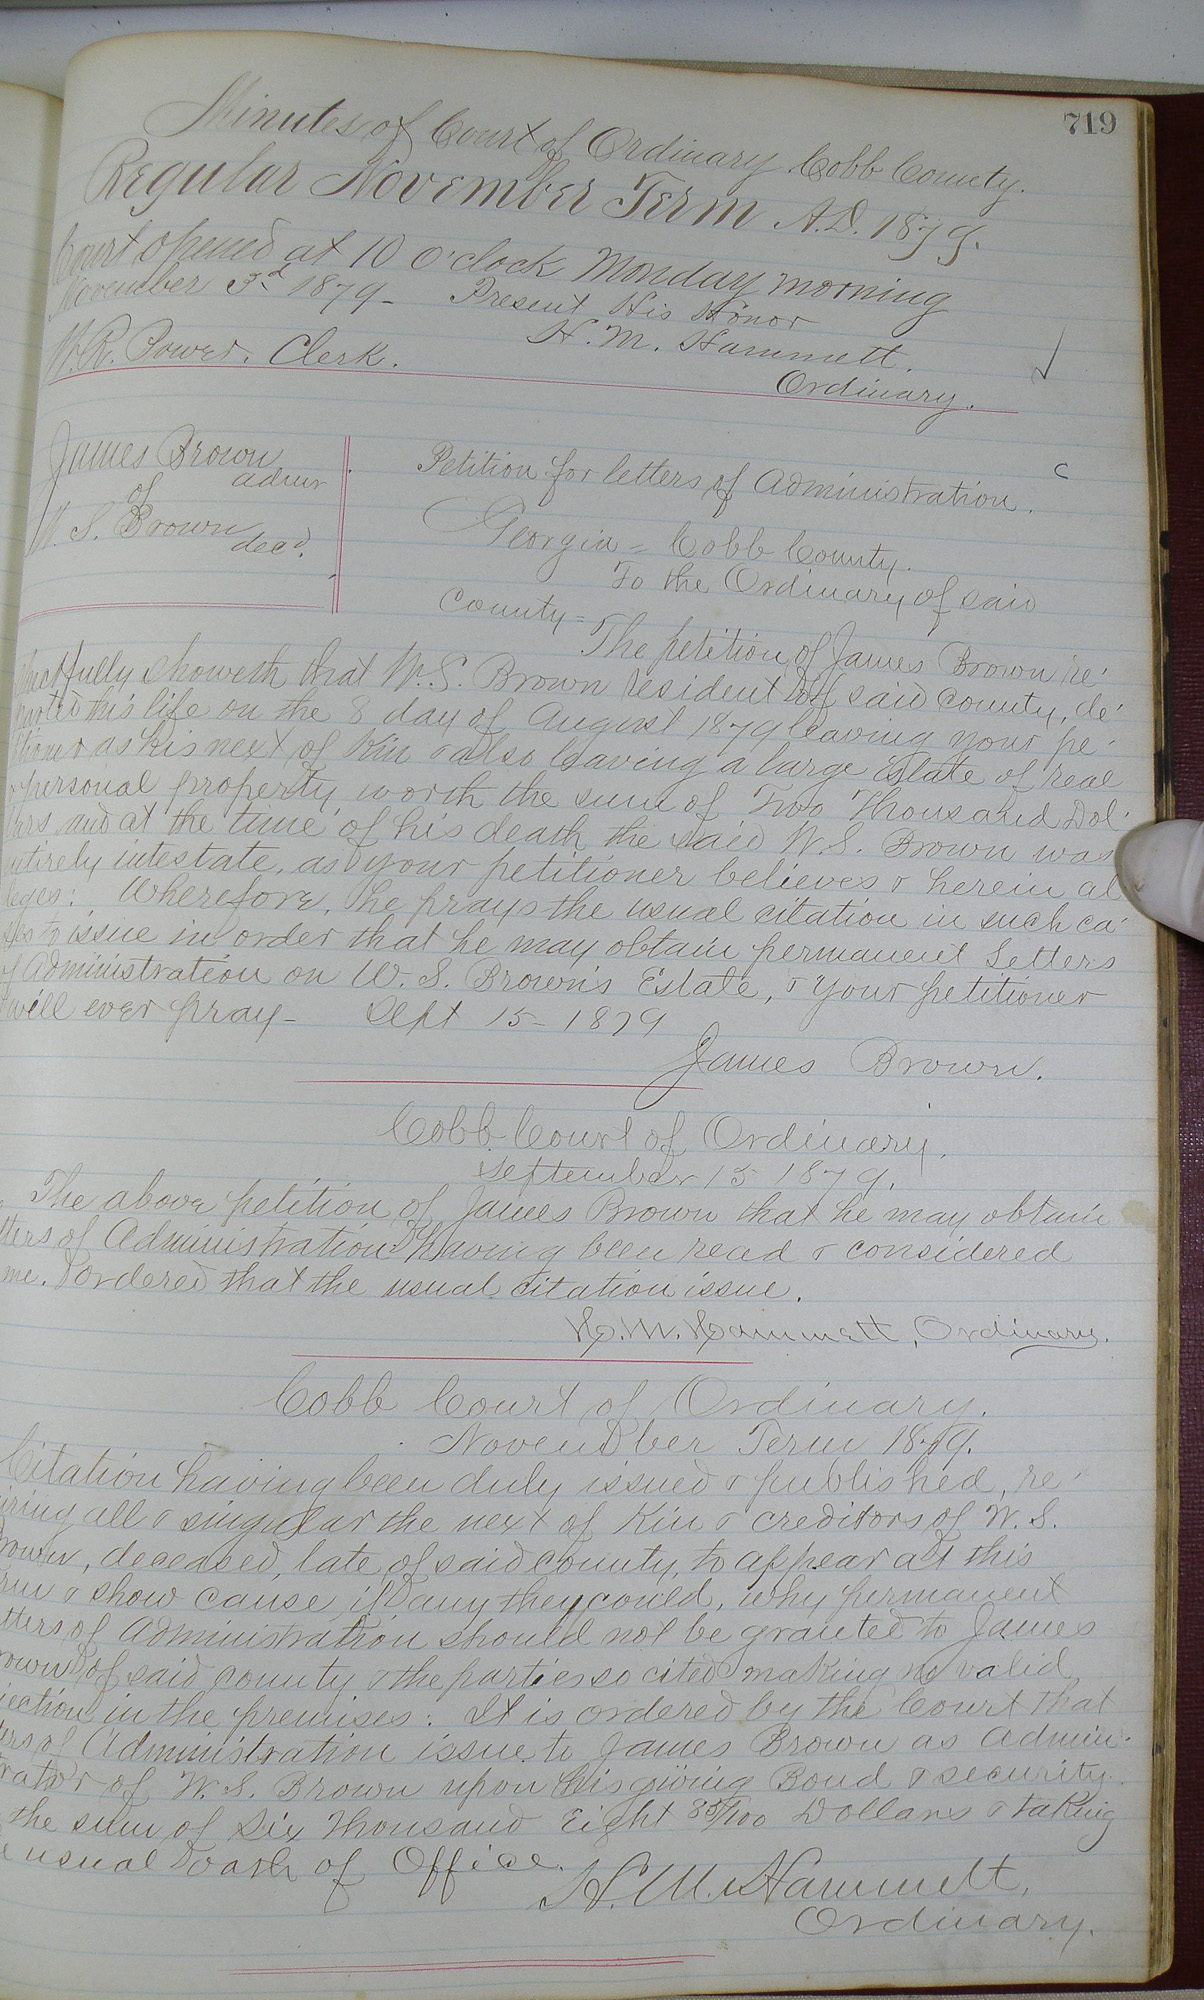 719
Minutes of Court of Ordinary Cobb County.
Regular November Term A.D. 1879.
Court opened at 10 o'clock Monday morning
November 3rd 1879 - Present His Honor
H. M. Hammett.
W. R. Power. Clerk.
Ordinary.
James Brown
admr
of
W. S. Brown
decd.
Petition for letters of Administration.
c
Georgia = Cobb County.
To the Ordinary of said
County =
The petition of James Brown re-
spectfully showeth that W. S. Brown resident of said county, de-
parted this life on the 8 day of August 1879 leaving your pe-
titioner as his next of kin & also leaving a large Estate of real
& personal property worth the sum of Two Thousand Dol-
lars, and at the time of his death the said W. S. Brown was
entirely intestate, as your petitioner believes & herein al
leges: Wherefore, he prays the usual citation in such ca-
ses to issue in order that he may obtain permanent Letters
of Administration on W. S. Brown's Estate, & your petitioner
will ever pray - Sept 15 - 1879
James Brown.
Cobb Court of Ordinary.
September 15 1879.
The above petition of James Brown that he may obtain
tters of Administration having been read & considered
me. ordered that the usual citation issue.
H. M. Hammett, Ordinary.
Cobb Court of Ordinary.
November Term 1879.
Citation having been duly issued & published, re-
iring all & singular the next of Kin & creditors of W. S.
rown, deceased, late of said county, to appear at this
rm & show cause, if any they could, why permanent
tters of Administration should not be granted to James
rown of said county & the parties so cited making no valid
jection in the premises: It is ordered by the Court that
ters of Administration issue to James Brown as Admin-
trator of W. S. Brown upon his giving Bond & security
the sum of Six Thousand Eight 85/100 Dollars & taking
e usual Oath of Office.
H. M. Hammett,
Ordinary.